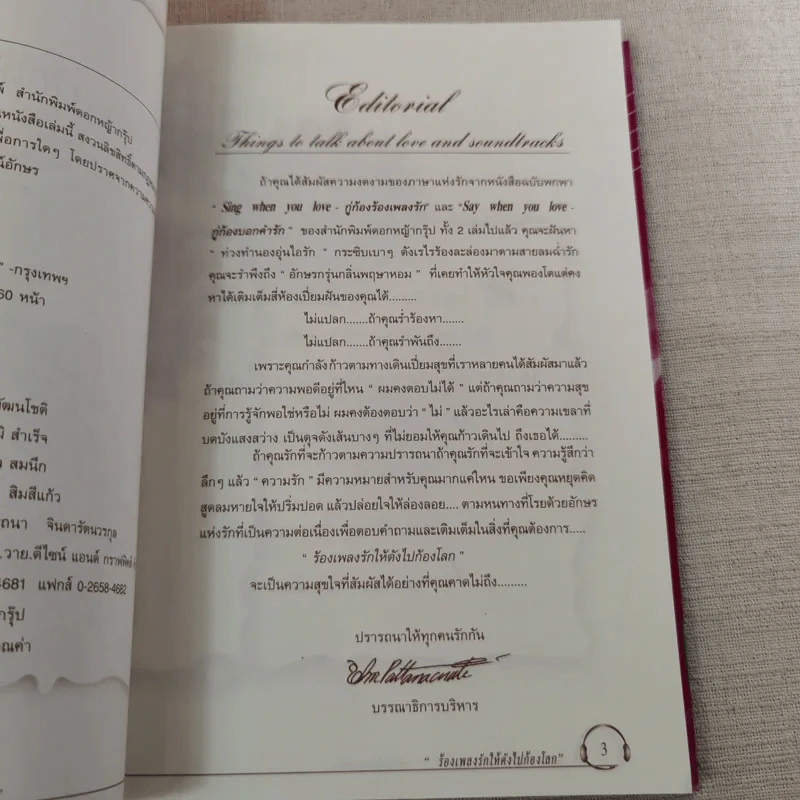 สำนักพิมพ์ดอกหญ้ากรุ๊ป
หนังสือเล่มนี้ สงวนลิขสิทธิ์
เพื่อการใดๆ โดยปราศจาก
-กรุงเทพฯ
60 หน้า
สำเร็จ
สมนึก
สิมสีแก้ว
จินดารัตนวรกุล
วาย.ดีไซน์ แอนด์
4681 แฟกส์ 0-2658-4682
Editorial
Things to talk about love and soundtracks
ถ้าคุณได้สัมผัสความงดงามของภาษาแห่งรักจากหนังสือฉบับพกพา
" Sing when you love - กู่ก้องร้องเพลงรัก" และ "Say when you love -
กู่ก้องบอกคำรัก " ของสำนักพิมพ์ดอกหญ้ากรุ๊ป ทั้ง 2 เล่มไปแล้ว คุณจะฝันหา
" ท่วงทำนองอุ่นไอรัก " กระซิบเบาๆ ดังเรไรร้องละล่องมาตามสายลมฉ่ำรัก
คุณจะรำพึงถึง " อักษรกรุ่นกลิ่นพฤษาหอม " ที่เคยทำให้หัวใจคุณพองโตแต่คง
หาได้เติมเต็มสี่ห้องเปี่ยมฝันของคุณได้.........
ไม่แปลก.......ถ้าคุณร่ำร้องหา.......
ไม่แปลก.......ถ้าคุณรำพันถึง.......
เพราะคุณกำลังก้าวตามทางเดินเปี่ยมสุขที่เราหลายคนได้สัมผัสมาแล้ว
ถ้าคุณถามว่าความพอดีอยู่ที่ไหน " ผมคงตอบไม่ได้ " แต่ถ้าคุณถามว่าความสุข
อยู่ที่การรู้จักพอใช่หรือไม่ ผมคงต้องตอบว่า " ไม่ " แล้วอะไรเล่าคือความเขลาที่
บดบังแสงสว่าง เป็นดุจดังเส้นบางๆ ที่ไม่ยอมให้คุณก้าวเดินไป ถึงเธอได้.........
ถ้าคุณรักที่จะก้าวตามความปรารถนาถ้าคุณรักที่จะเข้าใจ ความรู้สึกว่า
ลึกๆ แล้ว " ความรัก " มีความหมายสำหรับคุณมากแค่ไหน ขอเพียงคุณหยุดคิด
สูดลมหายใจให้ปริ่มปอด แล้วปล่อยใจให้ล่องลอย.... ตามหนทางที่โรยด้วยอักษร
แห่งรักที่เป็นความต่อเนื่องเพื่อตอบคำถามและเติมเต็มในสิ่งที่คุณต้องการ.....
" ร้องเพลงรักให้ดังไปก้องโลก "
จะเป็นความสุขใจที่สัมผัสได้อย่างที่คุณคาดไม่ถึง.........
ปรารถนาให้ทุกคนรักกัน
บรรณาธิการบริหาร
" ร้องเพลงรักให้ดังไปก้องโลก"
3